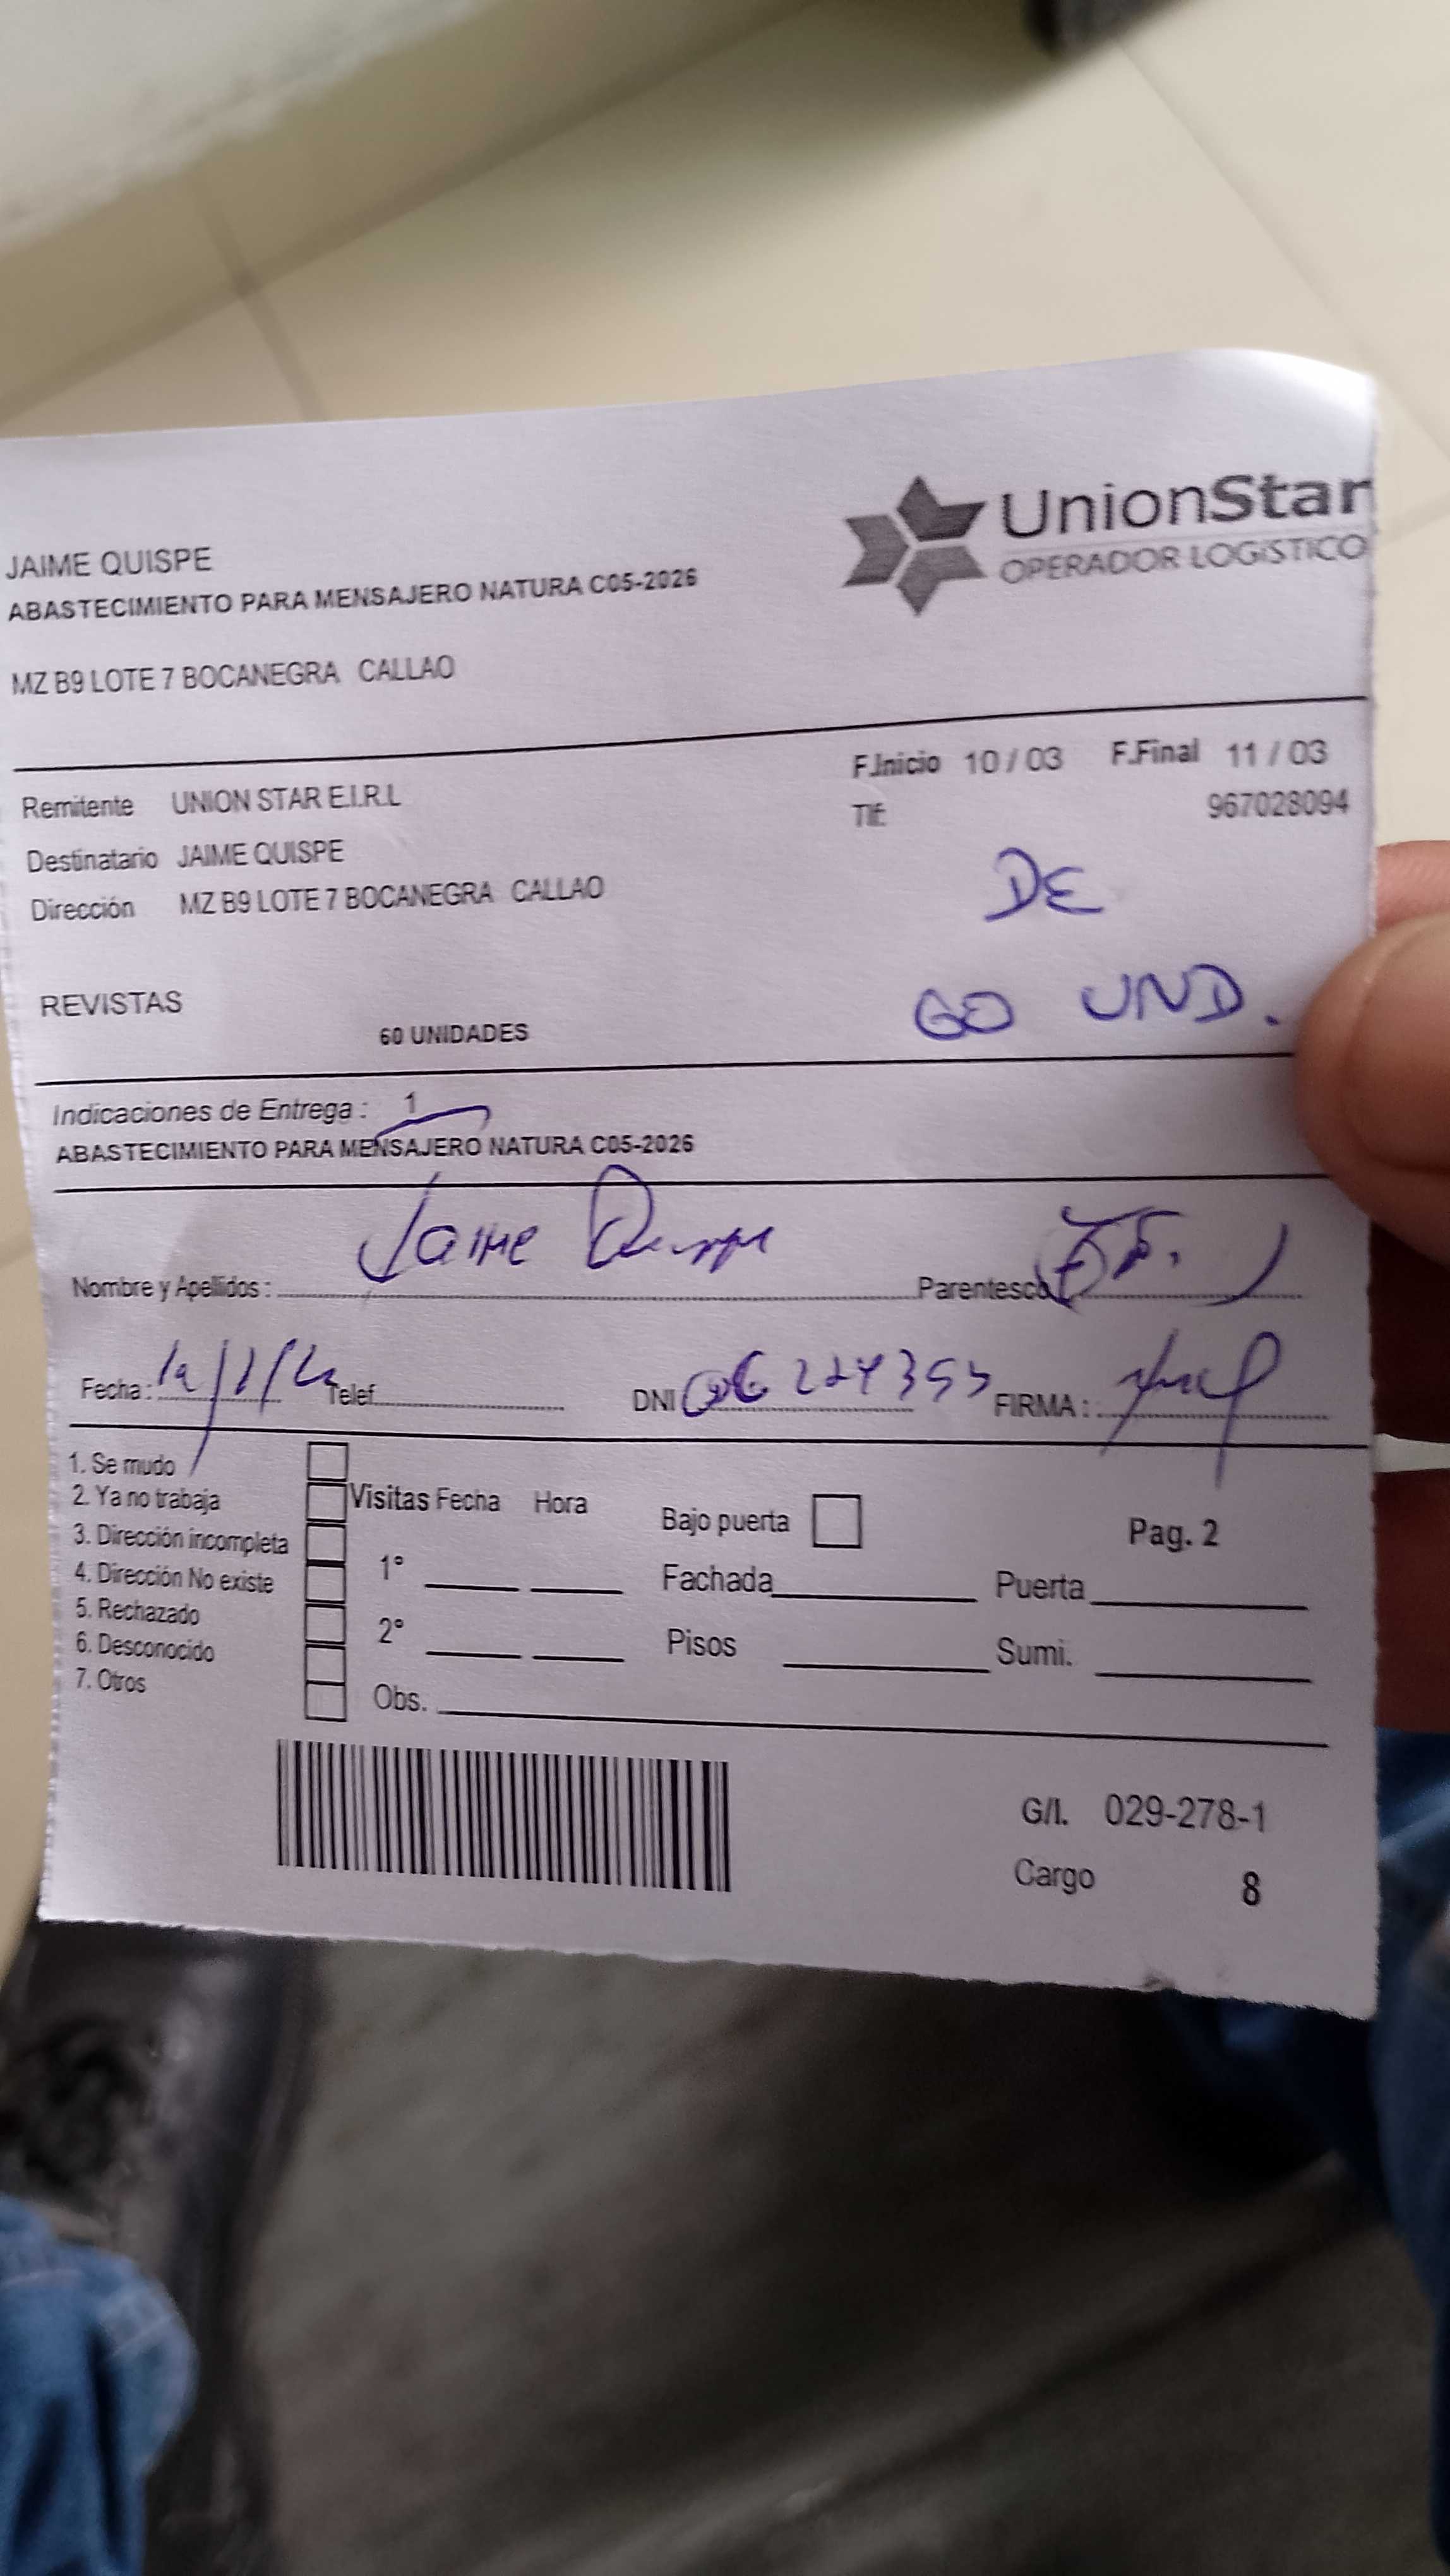 UnionStar
OPERADOR LOGÍSTICO
JAIME QUISPE
ABASTECIMIENTO PARA MENSAJERO NATURA C05-2026
MZ B9 LOTE 7 BOCANEGRA CALLAO
F.Inicio 10 / 03 F.Final 11 / 03
Remitente UNION STAR E.I.R.L
Tlf: 967028094
Destinatario JAIME QUISPE
DE
Dirección MZ B9 LOTE 7 BOCANEGRA CALLAO
REVISTAS
60 UND.
60 UNIDADES
Indicaciones de Entrega : 1
ABASTECIMIENTO PARA MENSAJERO NATURA C05-2026
Jaime Quispe
Nombre y Apellidos : Parentesco
Fecha : Telef. DNI FIRMA :
1. Se mudo
2. Ya no trabaja
3. Dirección incompleta
4. Dirección No existe
5. Rechazado
6. Desconocido
7. Otros
Visitas Fecha Hora
1°
2°
Obs.
Bajo puerta
Pag. 2
Fachada Puerta
Pisos Sumi.
G/I. 029-278-1
Cargo 8